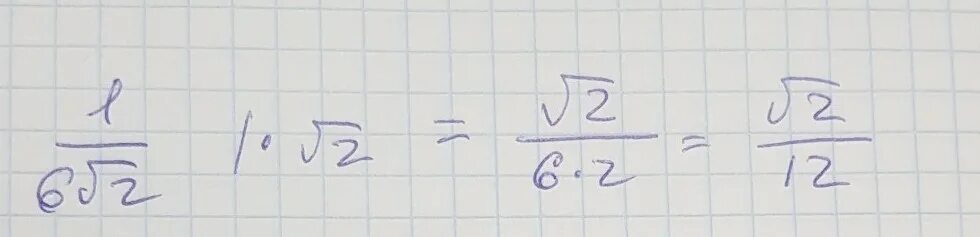 1/(6√2) /· √2 = √2/(6·2) = √2/12